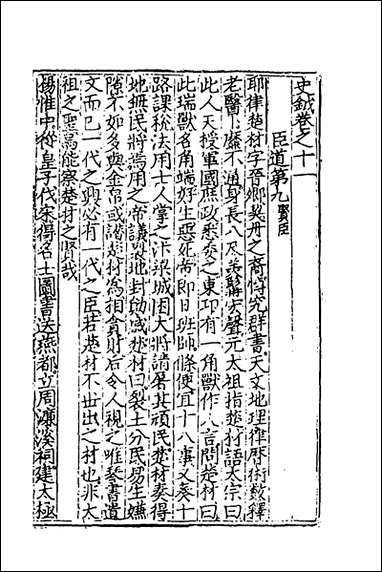 史鉞卷之十一
臣道第九 賢臣
耶律楚材字晉卿契丹之裔博究群書天文地理律曆術數釋
老醫卜靡不通身長八尺美髯宏聲元太祖指楚材語太宗曰
此人天授軍國庶政悉委之東印有一角獸作人言問楚材曰
此瑞獸名角端好生惡死帝即日班師條便宜十八事又奏十
路課稅法用士人掌之汴梁城困大將請屠其頑民楚材奏得
地無民將焉用之帝議裂地封功臣楚材曰裂土分民易生嫌
隙不如多與金帛或譖楚材為相貪財后令人視之唯琴書遺
文而已一代之興必有一代之臣若楚材不世出之材也非太
祖之聖焉能察楚材之賢哉
楊惟中從皇子伐宋得名士圖書送燕都立周濂溪祠建太極